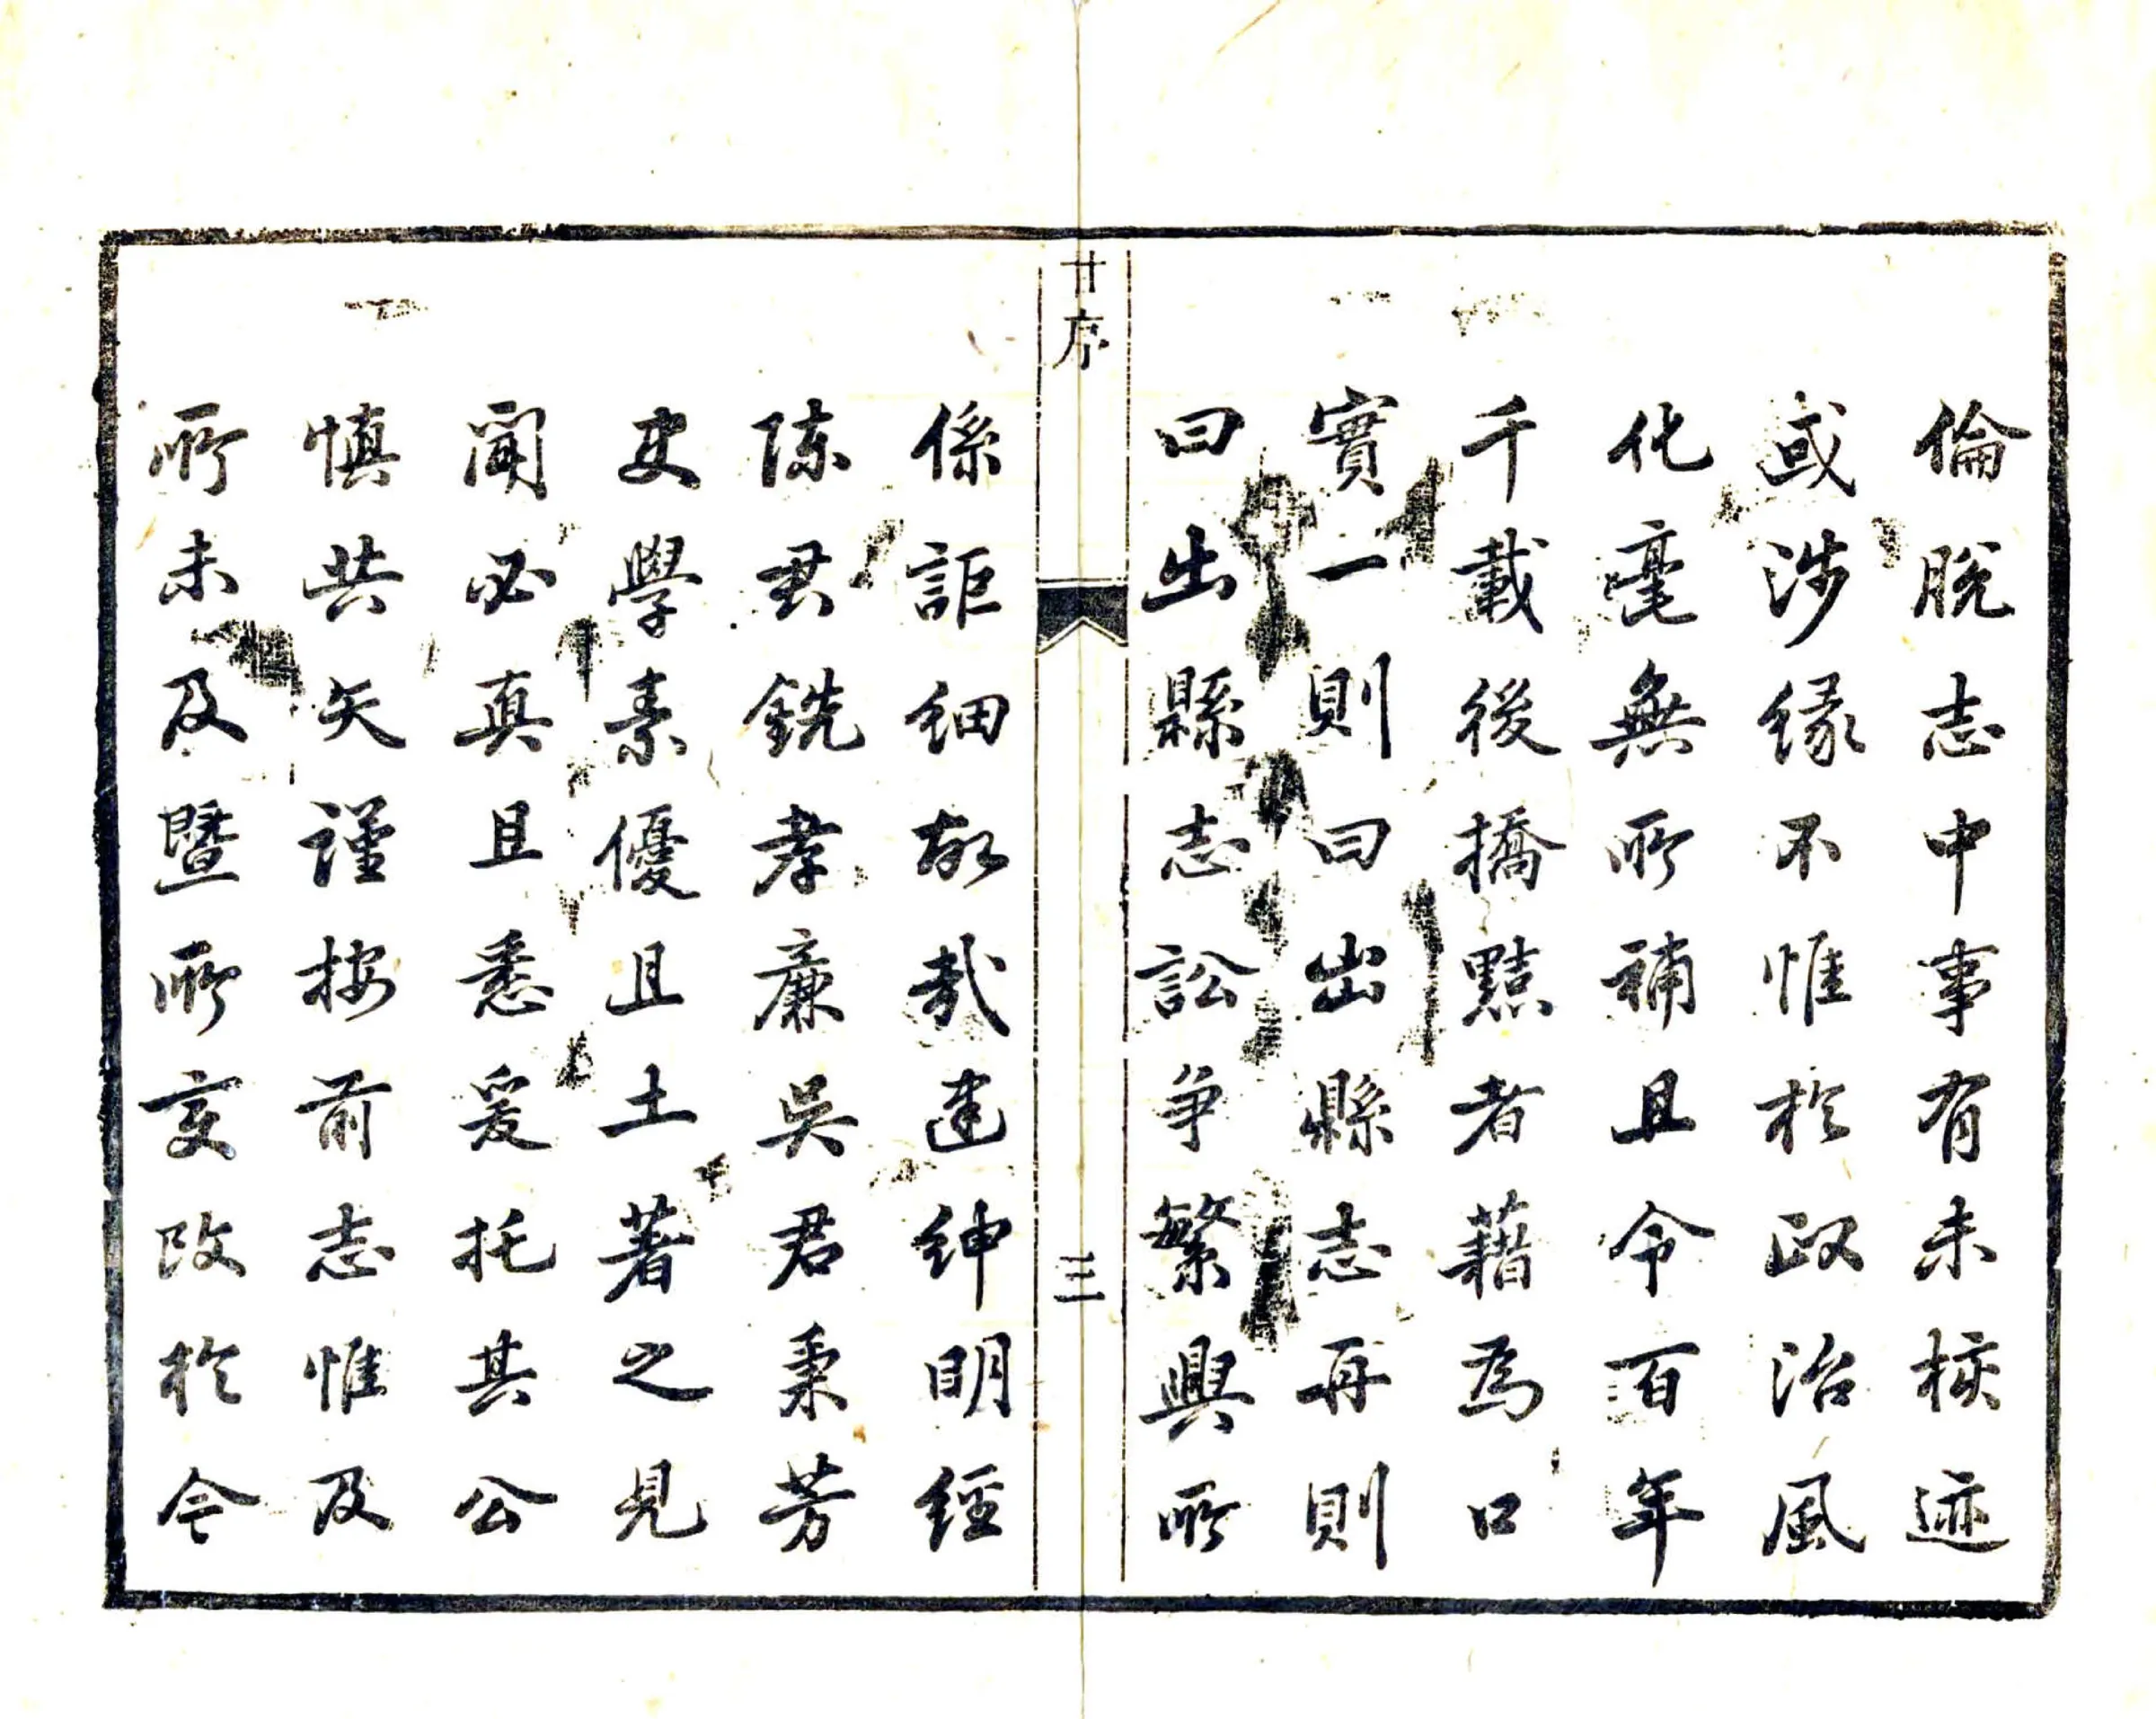 倫脫志中事有未核迹
或涉緣不惟於政治風
化毫無所補且令百年
千載後撟黠者藉為口
實一則曰出縣志再則
曰出縣志訟爭繁興所
甘序
三
係詎細故哉建紳明經
陳君銑孝廉吳君秉芳
史學素優且土著之見
聞必真且悉爰托其公
慎共矢謹按前志惟及
所未及暨所變改於今